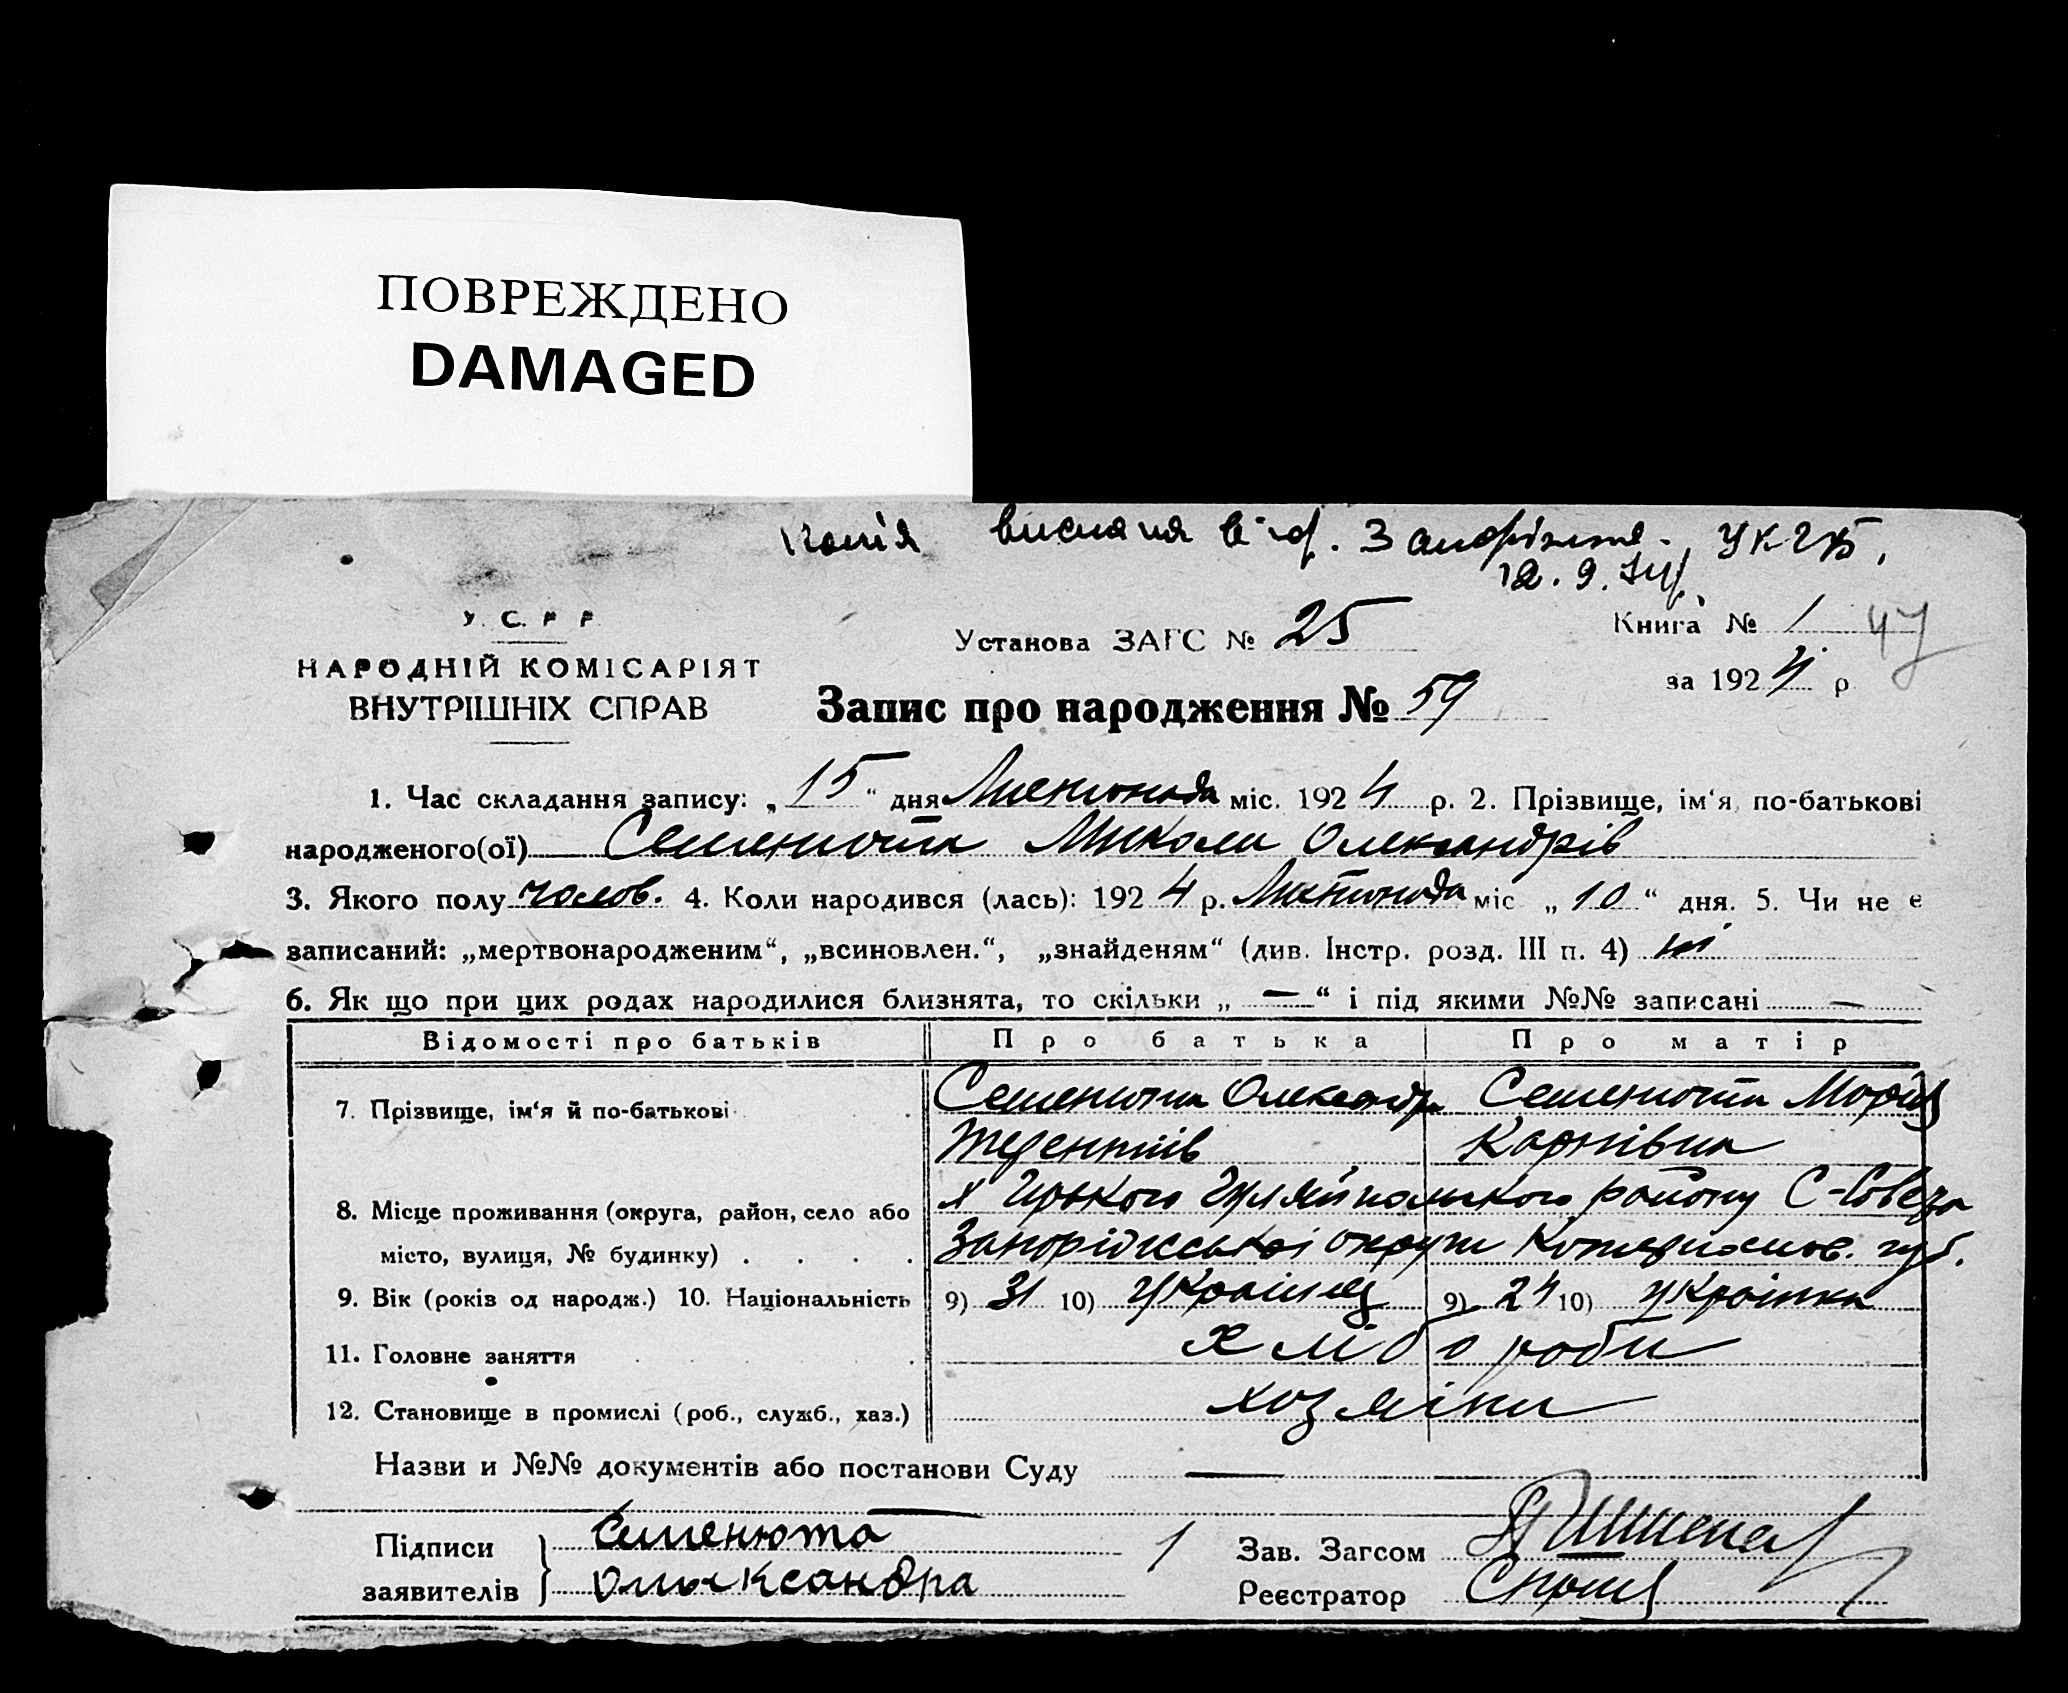 ПОВРЕЖДЕНО
DAMAGED
Копія вислана від. Запоріжжя. УКГБ,
12. 9.
У. С. Р. Р.
НАРОДНІЙ КОМІСАРІЯТ
ВНУТРІШНІХ СПРАВ
Установа ЗАГС № 25
Книга № 1 47
за 1924 р
Запис про народження № 59
1. Час складання запису: „ 15 “ дня Листопада міс. 1924 р. 2. Прізвище, ім‘я по-батькові
народженого(ої) Семенюта Микола Олександрів
3. Якого полу чолов. 4. Коли народився (лась): 1924 р. Листопада міс „ 10 “ дня. 5. Чи не є
записаний: „мертвонародженим“, „всиновлен.“, „знайденям“ (див. Інстр. розд. III п. 4) ні
6. Як що при цих родах народилися близнята, то скільки „ — “ і під якими №№ записані —
Відомості про батьків Про батька Про матір
7. Прізвище, ім‘я й по-батькові Семенюта Олександр Семенюта Марія
Терентіїв Карпівна
8. Місце проживання (округа, район, село або Гуляйпольського району
місто, вулиця, № будинку) . . . . Запорізської округи Катеринослав. губ.
9. Вік (років од народж.) 10. Національність 9) 31 10) Українец 9) 24 10) Українка
11. Головне заняття хліборoби
12. Становище в промислі (роб., служб., хаз.) хозяіни
Назви и №№ документів або постанови Суду —
Підписи Семенюта 1 Зав. Загсом
заявителів Олыксандра Реєстратор